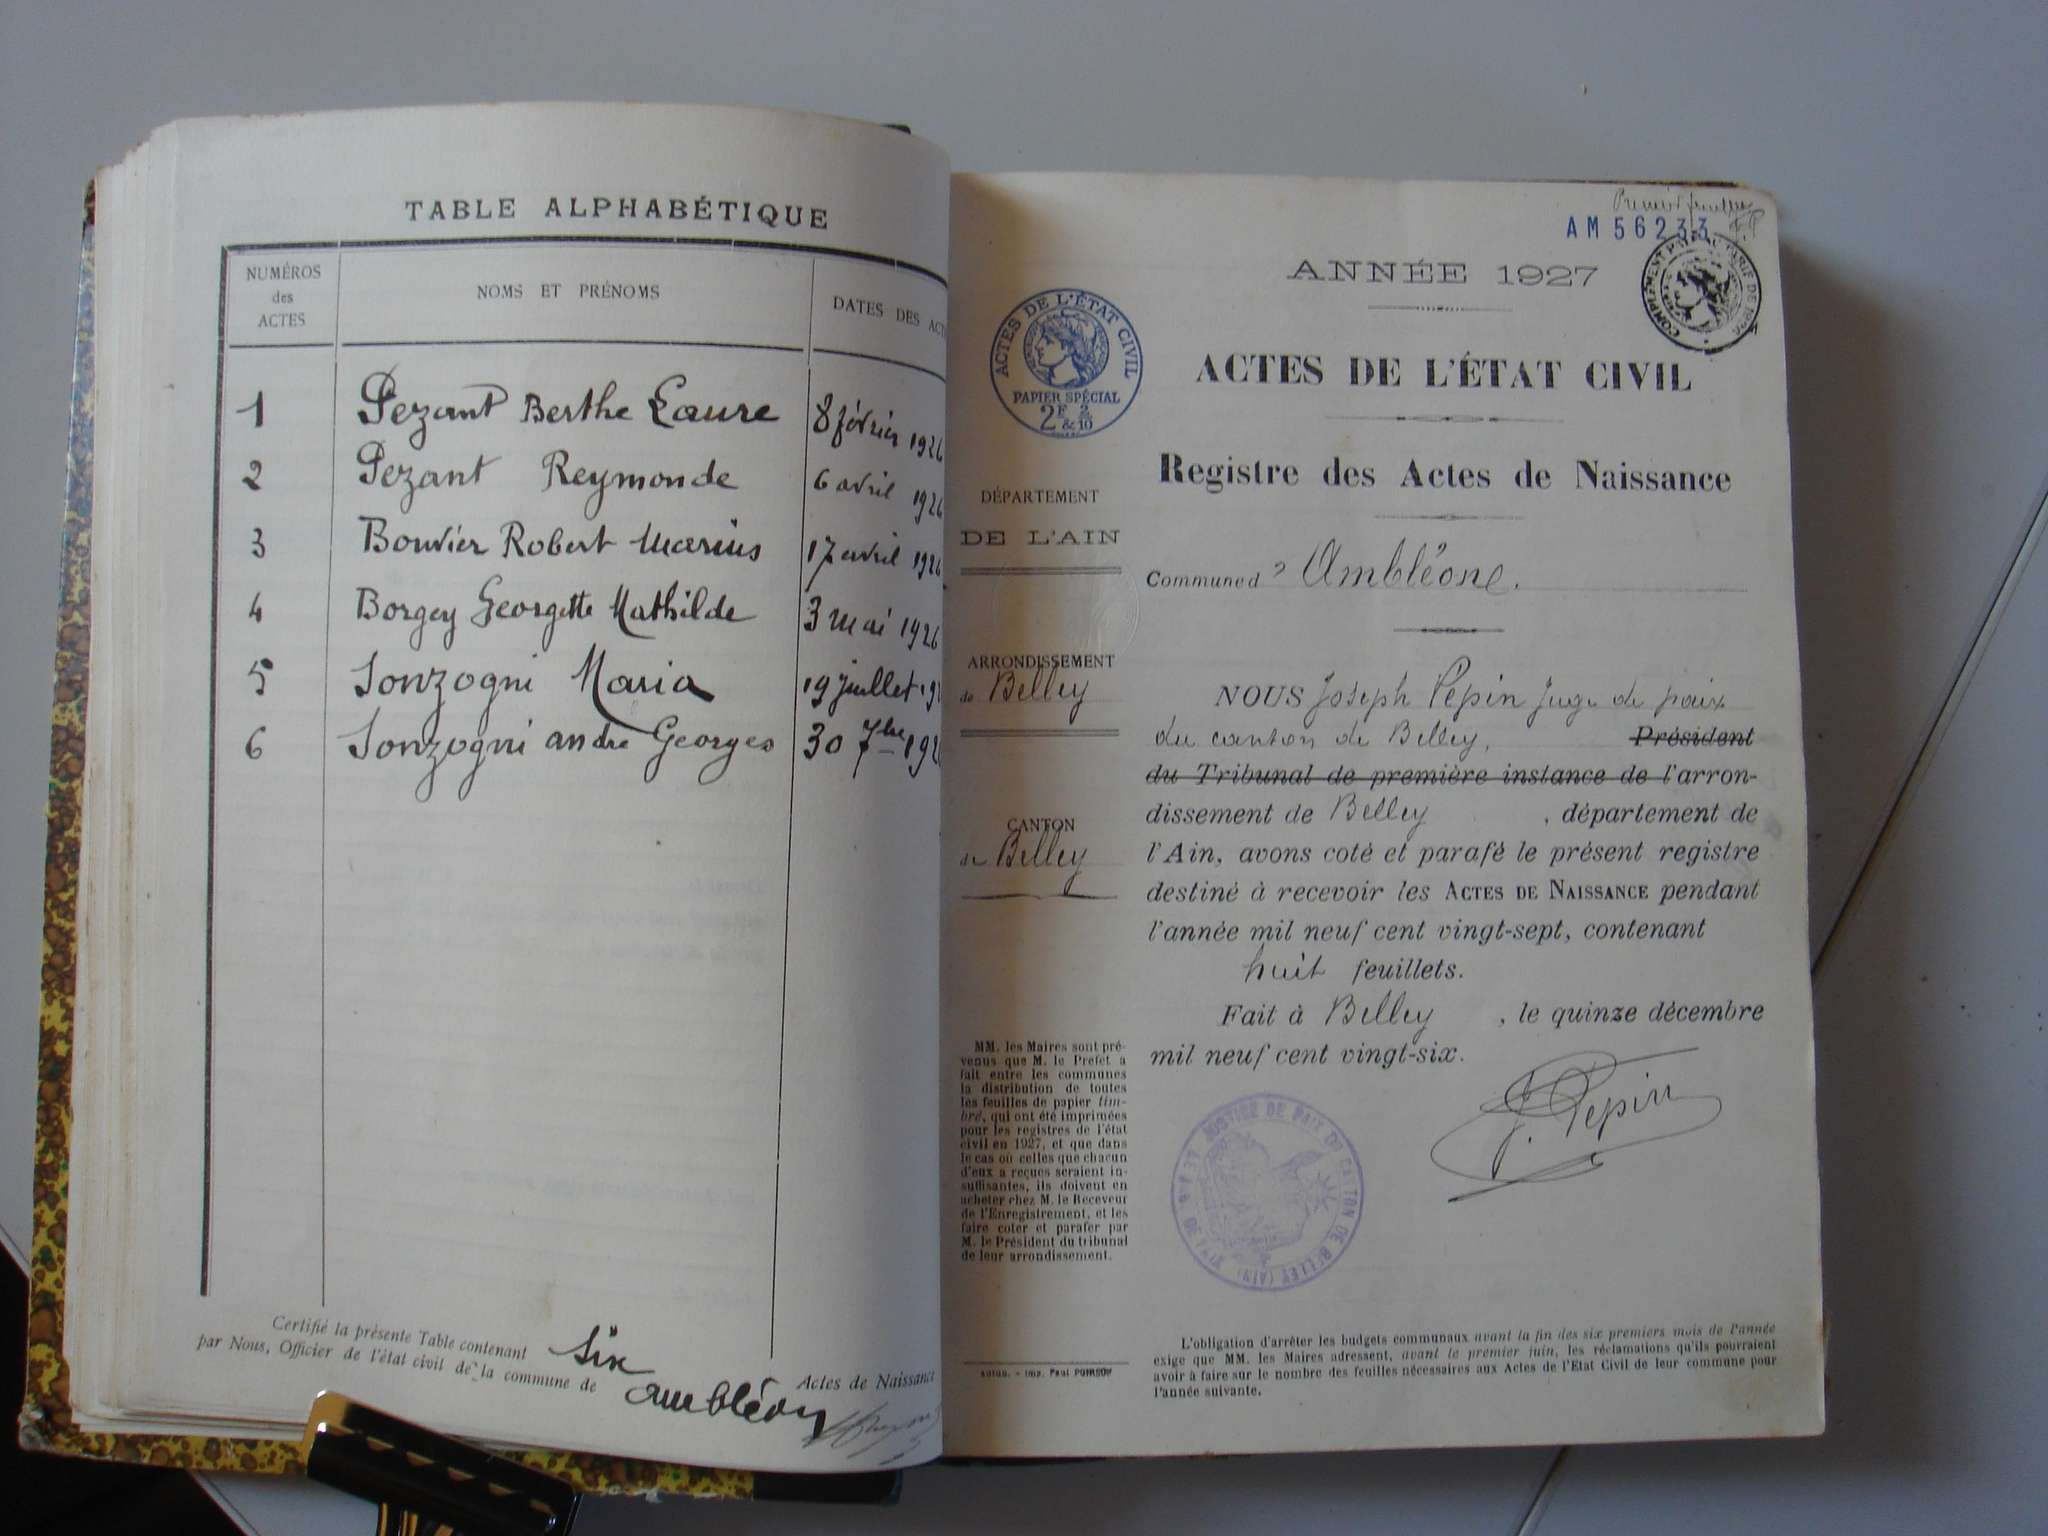 TABLE ALPHABÉTIQUE
NUMÉROS
des
ACTES
NOMS ET PRÉNOMS
DATES DES ACT
1 Pezant Berthe Laure 8 février 1926
2 Pezant Reymonde 6 avril 1926
3 Bouvier Robert Marius 17 avril 1926
4 Borgey Georgette Mathilde 3 mai 1926
5 Sonzogni Maria 19 juillet 19
6 Sonzogni andré Georges 30 7bre 192
Certifié la présente Table contenant six Actes de Naissance
par Nous, Officier de l'état civil de la commune de ambléon
Premier feuillet
AM56233
COMPLÉMENT
ANNÉE 1927
ACTES DE L'ÉTAT CIVIL
PAPIER SPÉCIAL
2F & 2/10
ACTES DE L'ÉTAT CIVIL
Registre des Actes de Naissance
DÉPARTEMENT
DE L'AIN
Commune d' Ambléone.
ARRONDISSEMENT
de Belley
CANTON
de Belley
NOUS Joseph Pepin Juge de paix
du canton de Belley, Président
du Tribunal de première instance de l'arron-
dissement de Belley, département de
l'Ain, avons coté et parafé le présent registre
destiné à recevoir les ACTES DE NAISSANCE pendant
l'année mil neuf cent vingt-sept, contenant
huit feuillets.
Fait à Belley, le quinze décembre
mil neuf cent vingt-six.
J. Pepin
JUSTICE DE PAIX DU CANTON DE BELLEY (AIN)
MM. les Maires sont pré-
venus que M. le Préfet a
fait entre les communes
la distribution de toutes
les feuilles de papier tim-
bré, qui ont été imprimées
pour les registres de l'état
civil en 1927, et que dans
le cas où celles que chacun
d'eux a reçues seraient in-
suffisantes, ils doivent en
acheter chez M. le Receveur
de l'Enregistrement, et les
faire coter et parafer par
M. le Président du tribunal
de leur arrondissement.
Imp. Paul
L'obligation d'arrêter les budgets communaux avant la fin des six premiers mois de l'année
exige que MM. les Maires adressent, avant le premier juin, les réclamations qu'ils pourraient
avoir à faire sur le nombre des feuilles nécessaires aux Actes de l'Etat Civil de leur commune pour
l'année suivante.